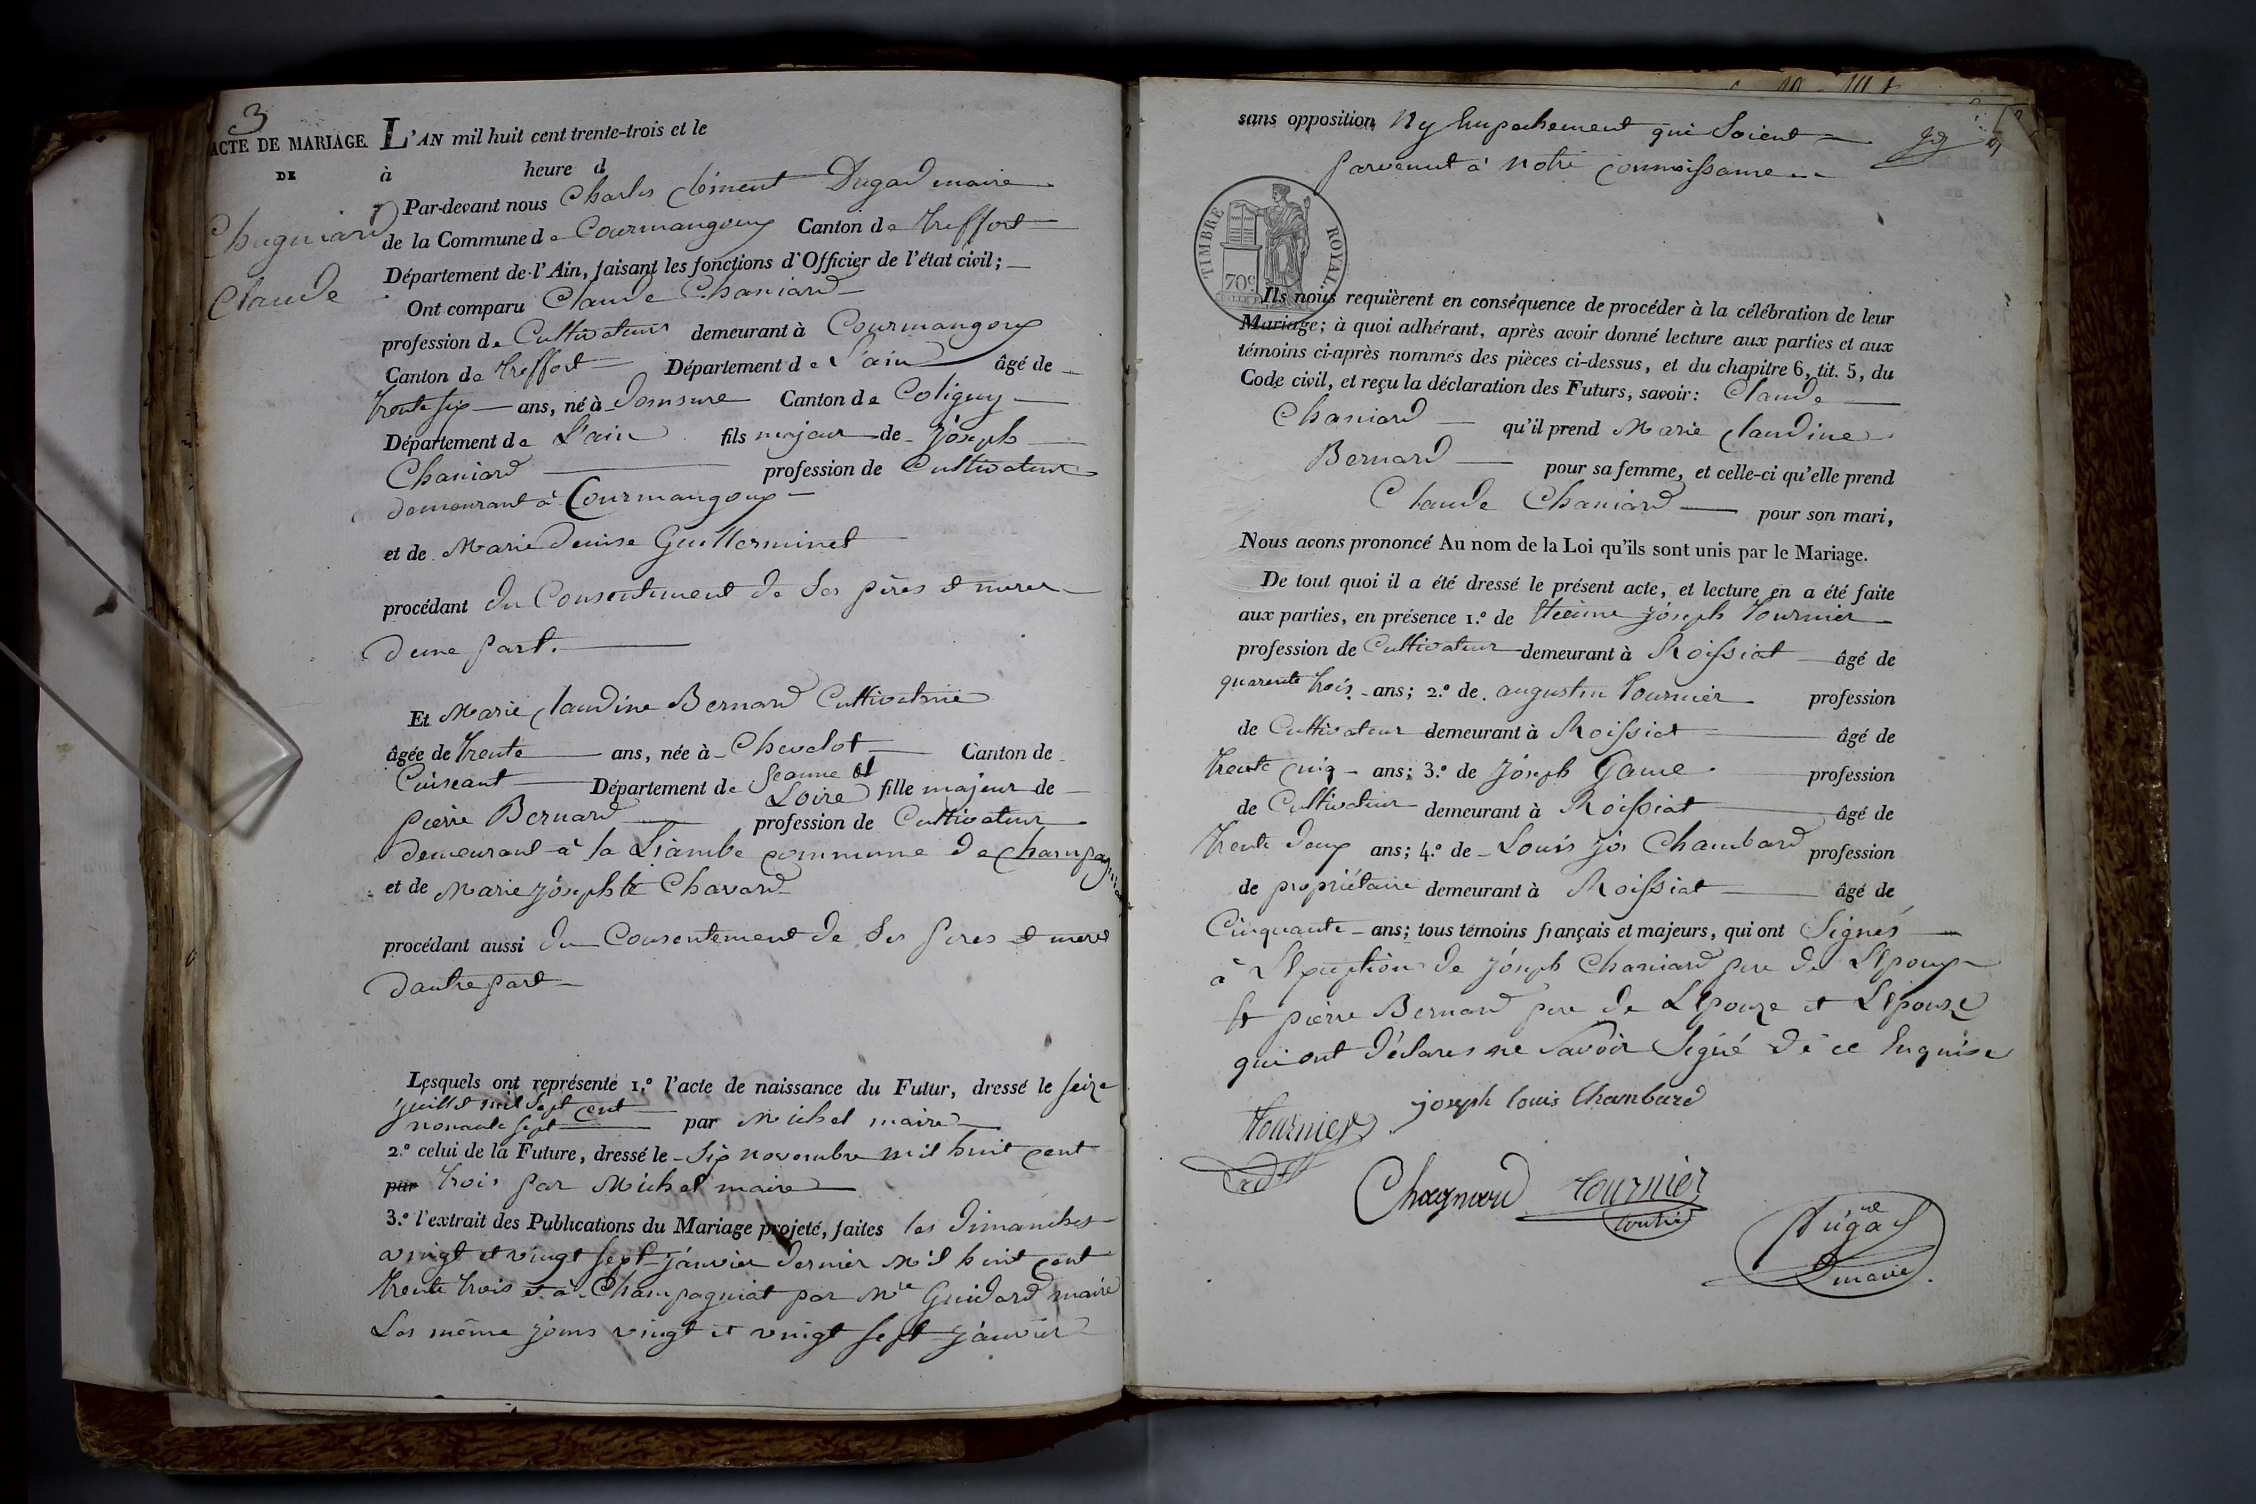 3
ACTE DE MARIAGE.
DE
Chagniard
Claude
L'AN mil huit cent trente-trois et le
à heure d
Par-devant nous Charles Clément Dugad maire
de la Commune de Courmangoux Canton de Treffort
Département de l'Ain, faisant les fonctions d'Officier de l'état civil;
Ont comparu Claude Chaniard
profession de Cultivateur demeurant à Courmangoux
Canton de Treffort Département de L'ain âgé de
trente six ans, né à Domsure Canton de Coligny
Département de L'ain fils majeur de Joseph
Chaniard profession de Cultivateur
demeurant à Courmangoux
et de Marie Denise Guillerminet
procédant du Consentement de Ses pères et meres
dune part.
Et Marie Claudine Bernard Cultivatrice
âgée de trente ans, née à Chevalot Canton de
Cuiseaut Département de Seaune et Loire fille majeur de
pierre Bernard profession de Cultivateur
demeurant à la Liambe commune de Champagniat
et de Marie Josephte Chavard
procédant aussi du Consentement de Ses peres et meres
dautre part
Lesquels ont représenté 1.º l'acte de naissance du Futur, dressé le seize
juillet mil sept cent
nonante sept par Michel maire
2.º celui de la Future, dressé le six novembre mil huit cent
par trois par Michel maire
3.º l'extrait des Publications du Mariage projeté, faites les dimanches
vingt et vingt sept janvier dernier mil huit cent
trente trois et à Champagniat par Mre Guidard maire
Les même jours vingt et vingt sept janvier
sans opposition ny Empechement qui Soient
parvenut à notre connoissance
TIMBRE ROYAL
70c
Ils nous requièrent en conséquence de procéder à la célébration de leur
Mariage; à quoi adhérant, après avoir donné lecture aux parties et aux
témoins ci-après nommés des pièces ci-dessus, et du chapitre 6, tit. 5, du
Code civil, et reçu la déclaration des Futurs, savoir: Claude
Chaniard qu'il prend Marie Claudine
Bernard pour sa femme, et celle-ci qu'elle prend
Claude Chaniard pour son mari,
Nous avons prononcé Au nom de la Loi qu'ils sont unis par le Mariage.
De tout quoi il a été dressé le présent acte, et lecture en a été faite
aux parties, en présence 1.º de Etienne Joseph Tournier
profession de Cultivateur demeurant à Roissiat âgé de
quarente trois ans; 2.º de augustin Tournier profession
de Cultivateur demeurant à Roissiat âgé de
trente cinq ans; 3.º de Joseph Game profession
de Cultivateur demeurant à Roissiat âgé de
trente deux ans; 4.º de Louis Jos Chambard profession
de propriétaire demeurant à Roissiat âgé de
Cinquante ans; tous témoins français et majeurs, qui ont Signés
à L'Exception de Joseph Chaniard pere de L'Epoux
Et pierre Bernard pere de L'Epouze et L'Epouze
qui ont déclares ne Savoir Signé de ce Enquise
joseph louis Chambard
Tournier
Chagniard Tournier
Dugad
maire